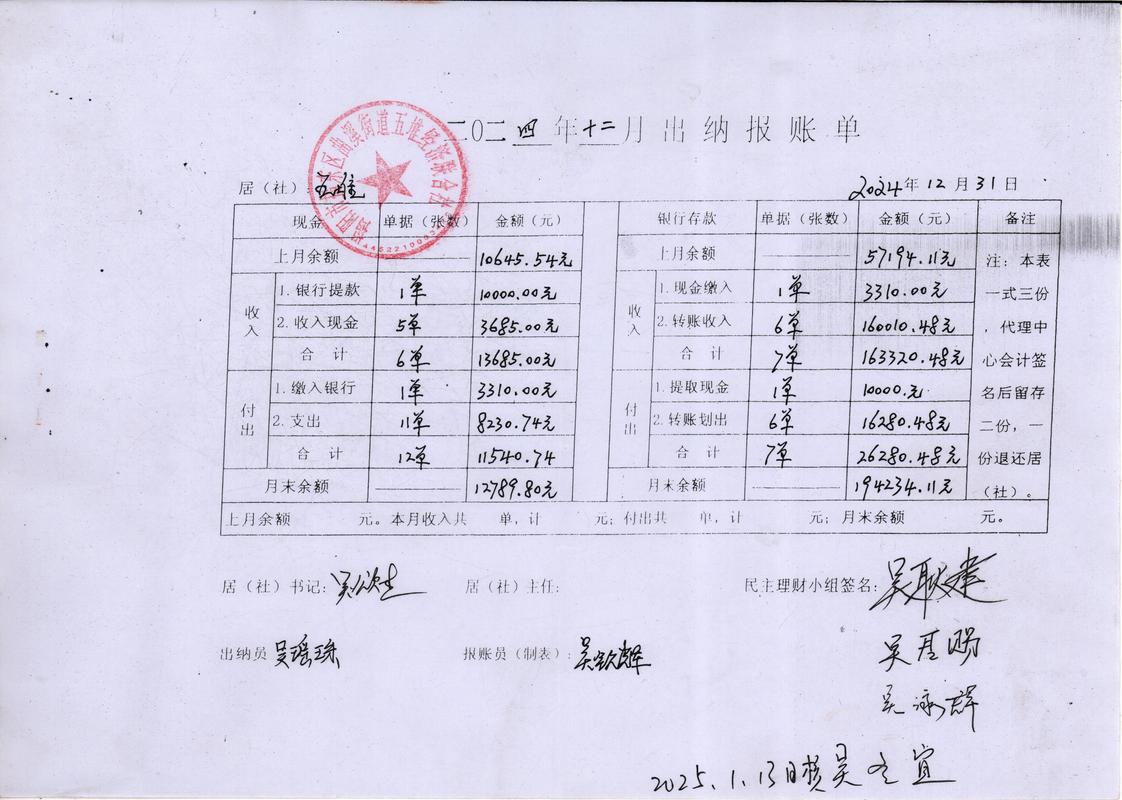 二〇二四年十二月出纳报账单
居（社）：五堆
2024年12月31日
现金 单据（张数） 金额（元） 银行存款 单据（张数） 金额（元） 备注
上月余额 10645.54元 上月余额 57194.11元
收入 1.银行提款 1单 10000.00元 收入 1.现金缴入 1单 3310.00元
2.收入现金 5单 3685.00元 2.转账收入 6单 160010.48元
合计 6单 13685.00元 合计 7单 163320.48元
付出 1.缴入银行 1单 3310.00元 付出 1.提取现金 1单 10000.元
2.支出 11单 8230.74元 2.转账划出 6单 16280.48元
合计 12单 11540.74 合计 7单 26280.48元
月末余额 12789.80元 月末余额 194234.11元
注：本表
一式三份
，代理中
心会计签
名后留存
二份，一
份退还居
（社）。
上月余额 元。本月收入共 单，计 元；付出共 单，计 元；月末余额 元。
居（社）书记： 居（社）主任： 民主理财小组签名：吴耿建
吴基鸿
出纳员 吴瑶珠 报账员（制表）：吴钦辉
吴泳群
2025.1.13日 吴冬宜
曲溪街道五堆经济联合社